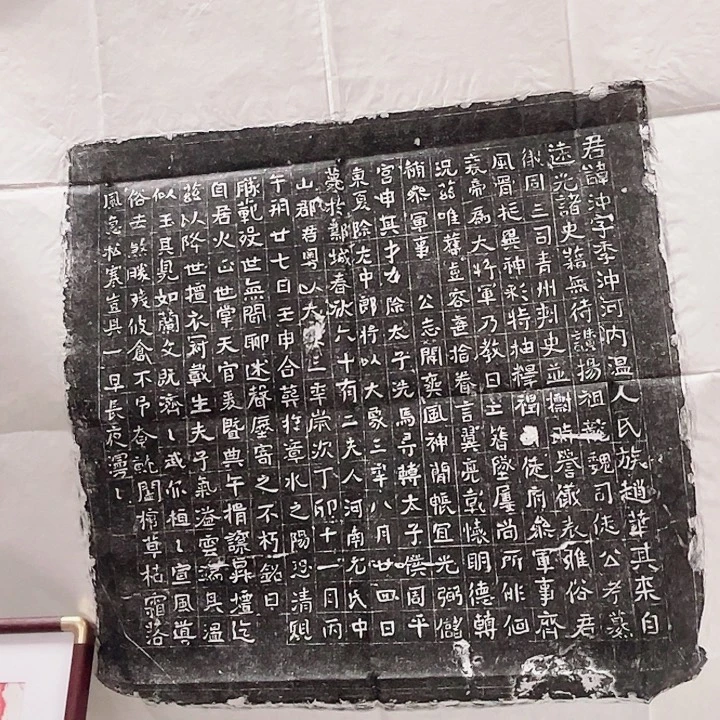 君諱沖字季沖河內温人氏族趙華其來自
遠光諸史籍無待讚揚祖懿魏司徒公考纂
儀同三司青州刺史並樹時譽儀表雅俗君
風骨挺異神彩特抽釋褐司徒府叅軍事齊
襄帝為大將軍乃教曰主簿墜屢尚所俳佪
況茲唯舊豈容違捨眷言翼亮乾懷明德轉
銷叅軍事 公志閑爽風神閒悵宜光弼儲
宮申其才力除太子洗馬尋轉太子僕周平
東夏除太中郎將以大象三年八月廿四日
薨於鄴城春秋六十有二夫人河南元氏中
山郡君粵以大 三年歲次丁卯十一月丙
午朔廿七日壬申合葬於漳水之陽恐清䚷
勝範歿世無聞聊述聲塵寄之不朽銘曰
自君火正世掌天官爰暨典午揖讓昇壇迄
茲以降世擅衣冠載生夫子氣溢雲端具温
似玉其見如蘭文既濟〻武亦桓〻宣風導
俗去煞勝殘伇倉不弔奈 闔掃草枯霜落
風急松寒豈與一旱長夜漫〻